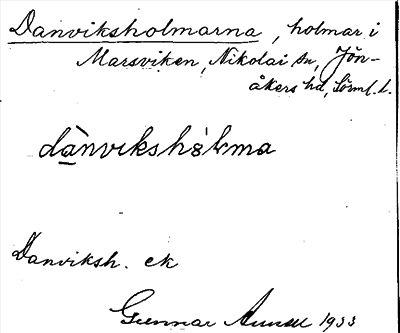 Danviksholmarna, holmar i
Marsviken, Nikolai sn, Jön-
åkers hd, Sörml. l.
dànvikshȯlma
Danviksh. ek
Gunnar 1933